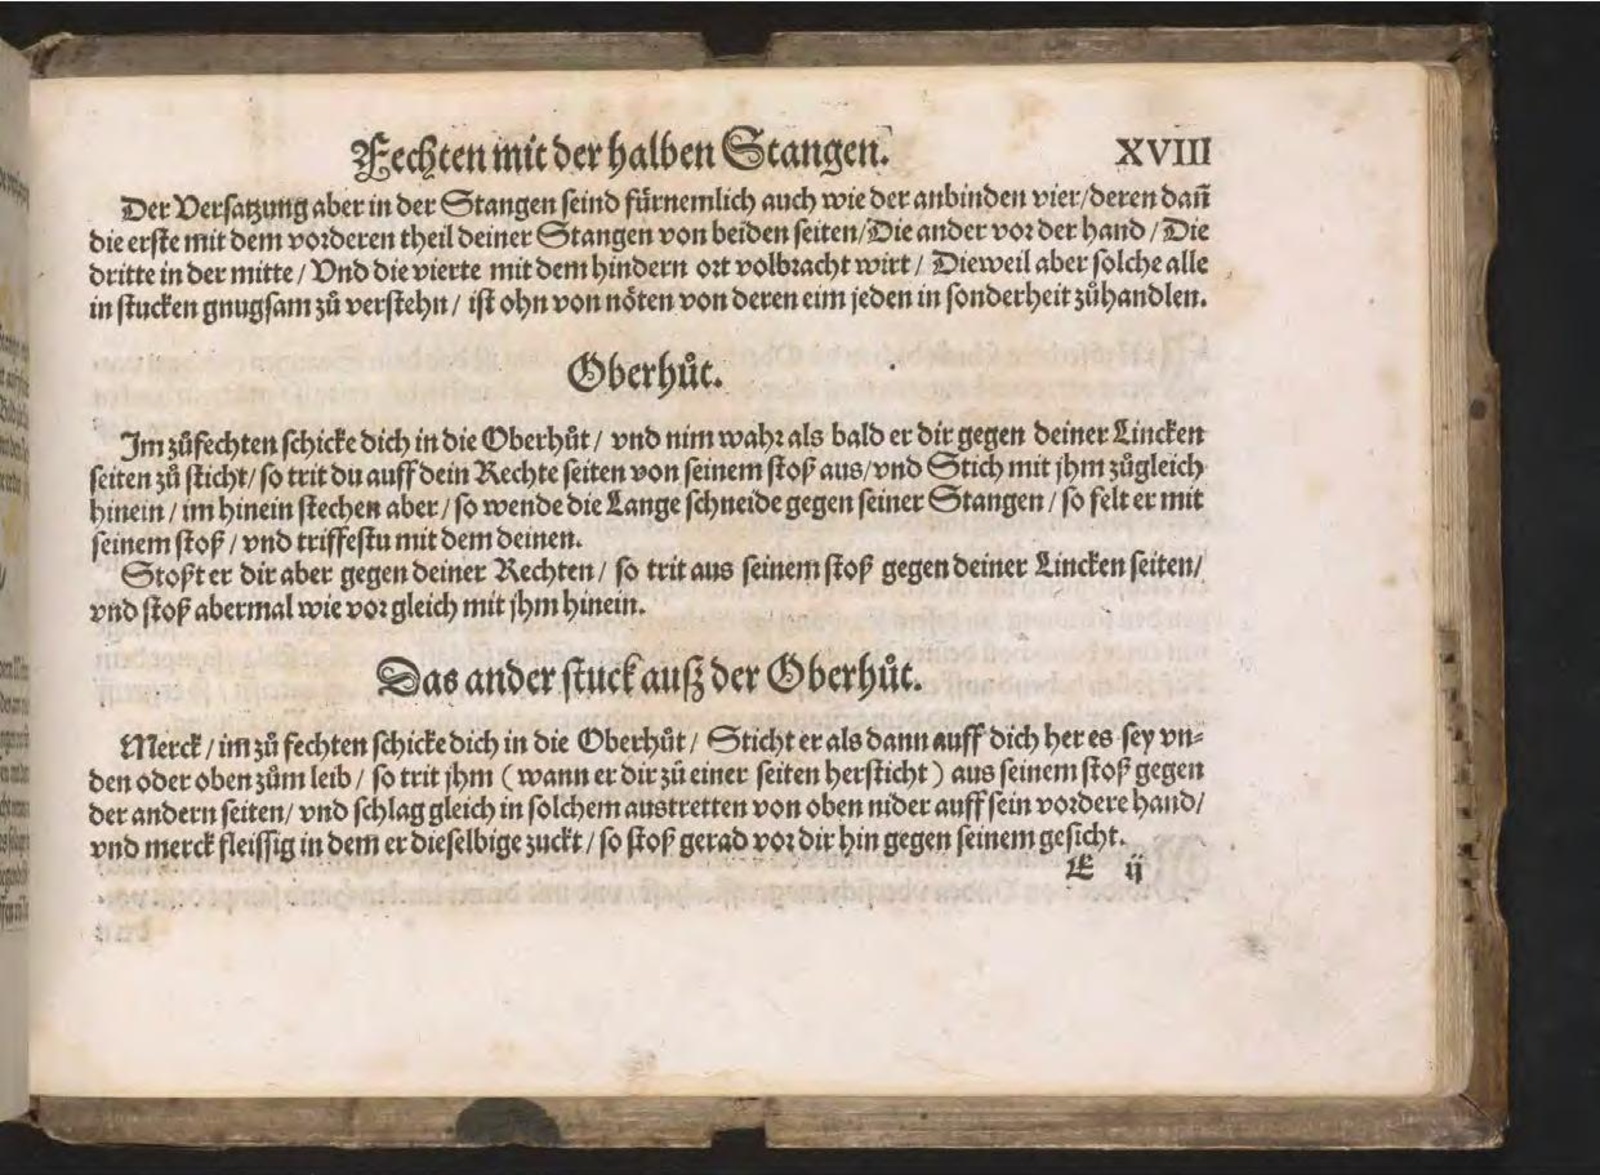 Fechten mit der halben Stangen. XVIII
Der Versatzung aber in der Stangen seind fürnemlich auch wie der anbinden vier/deren dañ
die erste mit dem vorderen theil deiner Stangen von beiden seiten/Die ander vor der hand/Die
dritte in der mitte/Vnd die vierte mit dem hindern ort volbracht wirt/Dieweil aber solche alle
in stucken gnugsam zů verstehn/ist ohn von nöten von deren eim jeden in sonderheit zůhandlen.
Oberhůt.
Im zůfechten schicke dich in die Oberhůt/vnd nim wahr als bald er dir gegen deiner Lincken
seiten zů sticht/so trit du auff dein Rechte seiten von seinem stoß aus/vnd Stich mit jhm zůgleich
hinein/im hinein stechen aber/so wende die Lange schneide gegen seiner Stangen/so felt er mit
seinem stoß/vnd triffestu mit dem deinen.
Stoßt er dir aber gegen deiner Rechten/so trit aus seinem stoß gegen deiner Lincken seiten/
vnd stoß abermal wie vor gleich mit jhm hinein.
Das ander stuck auß der Oberhůt.
Merck/im zů fechten schicke dich in die Oberhůt/Sticht er als dann auff dich her es sey vn-
den oder oben zům leib/so trit jhm (wann er dir zů einer seiten hersticht) aus seinem stoß gegen
der andern seiten/vnd schlag gleich in solchem austretten von oben nider auff sein vordere hand/
vnd merck fleissig in dem er dieselbige zuckt/so stoß gerad vor dir hin gegen seinem gesicht.
E ij